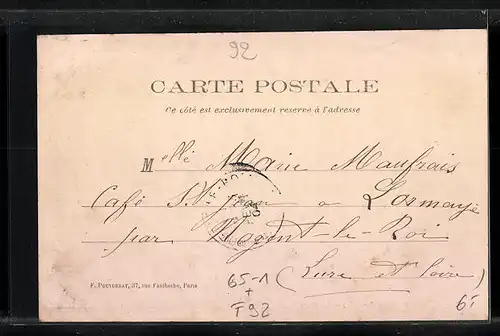 92
CARTE POSTALE
Ce côté est exclusivement réservé à l'adresse
Melle Marie Maufrais
Café St Jean a Lormaye
par Nogent-le-Roi
(Eure et Loire)
F. POUYDEBAT, 37, rue Faidherbe, Paris
65-1
+
F92
65